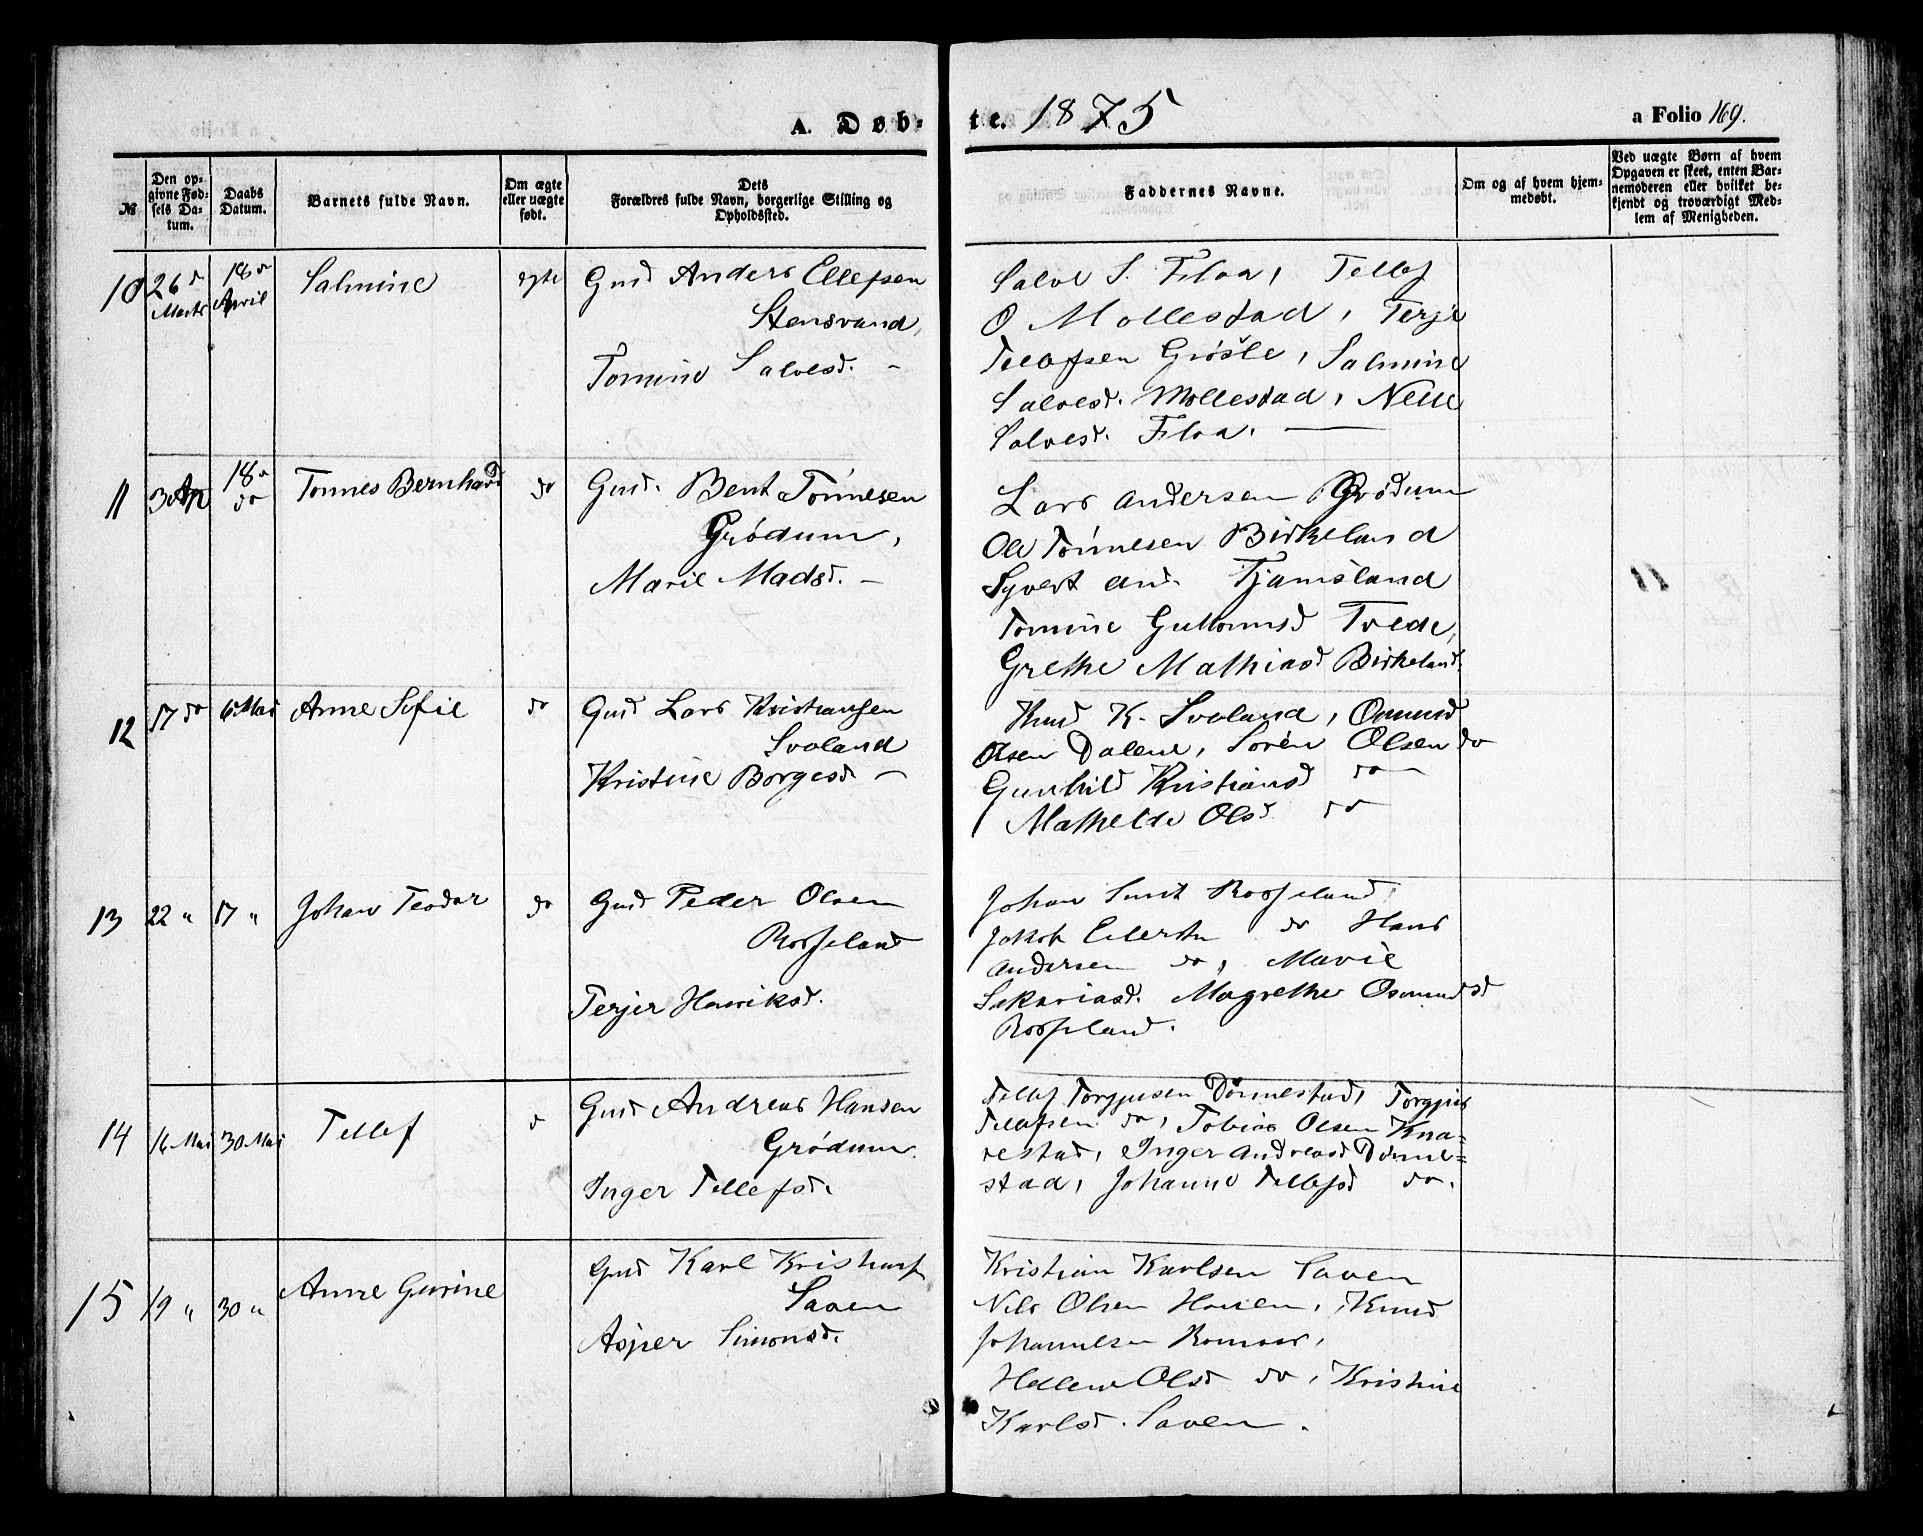 A. Døb-
te. 1875
a Folio 169.
№
Den op-
givne Fød-
sels Da-
tum.
Daabs
Datum.
Barnets fulde Navn.
Om ægte
eller uægte
født.
Dets
Forældres fulde Navn, borgerlige Stilling og
Opholdssted.
Faddernes Navne.
Om og af hvem hjem-
medøbt.
Ved uægte Børn af hvem
Opgaven er skeet, enten Bar-
nemoderen eller hvilket be-
kjendt og troværdigt Med-
lem af Menigheden.
10 26 Marts 18 April Salmine egte Gmd Anders Ellefsen
Stensvand,
Tomine Salvesd. -
Salve S. Floa, Tellef
O Mollestad, Terje
Tellefsen Grøsle, Salmine
Salvesd. Mollestad, Nelle
Salvesd. Floa.
11 3 Ap 18 do Tønnes Bernhard do Gmd. Bent Tönnesen
Grødum,
Marie Madsd. -
Lars Andersen Grödum
Ole Tönnesen Birkeland
Syvert And. Tjamsland
Tomine Guttormsd Tvede,
Grethe Mathiasd Birkeland.
12 17 do 6 Mai Anne Sofie do Gmd Lars Kristiansen
Svaland
Kristine Borgesd -
Knud K. Svaland, Osmund
Olsen Dalene, Sorén Olsen do
Gunhild Kristiansd do
Mathelde Olsd do
13 22 " 17 " Johan Teodor do Gmd Peder Olsen
Rosseland
Terjer Henriksd.
Johan Smit Rosseland,
Jakob Ellersen do Hans
Andersen do, Marie
Sakariasd. Magrethe Osmundsd
Rosseland.
14 16 Mai 30 Mai Tellef do Gmd Andreas Hansen
Grödum.
Inger Tellefsd.
Tellef Torgjusen Dønnestad, Torgjus
Tellefsen do, Tobias Olsen Kna-
restad, Inger Andreasd Dönne=
stad, Johanne Tellefsd do.
15 19 " 30 " Anne Gurine Gmd Karl Kristians
Saven
Asper Simonsd.
Kristian Karlsen Saven
Nils Olsen , Knud
Johannesen ,
Hellene Olsd do, Kristine
Karlsd. Saven.